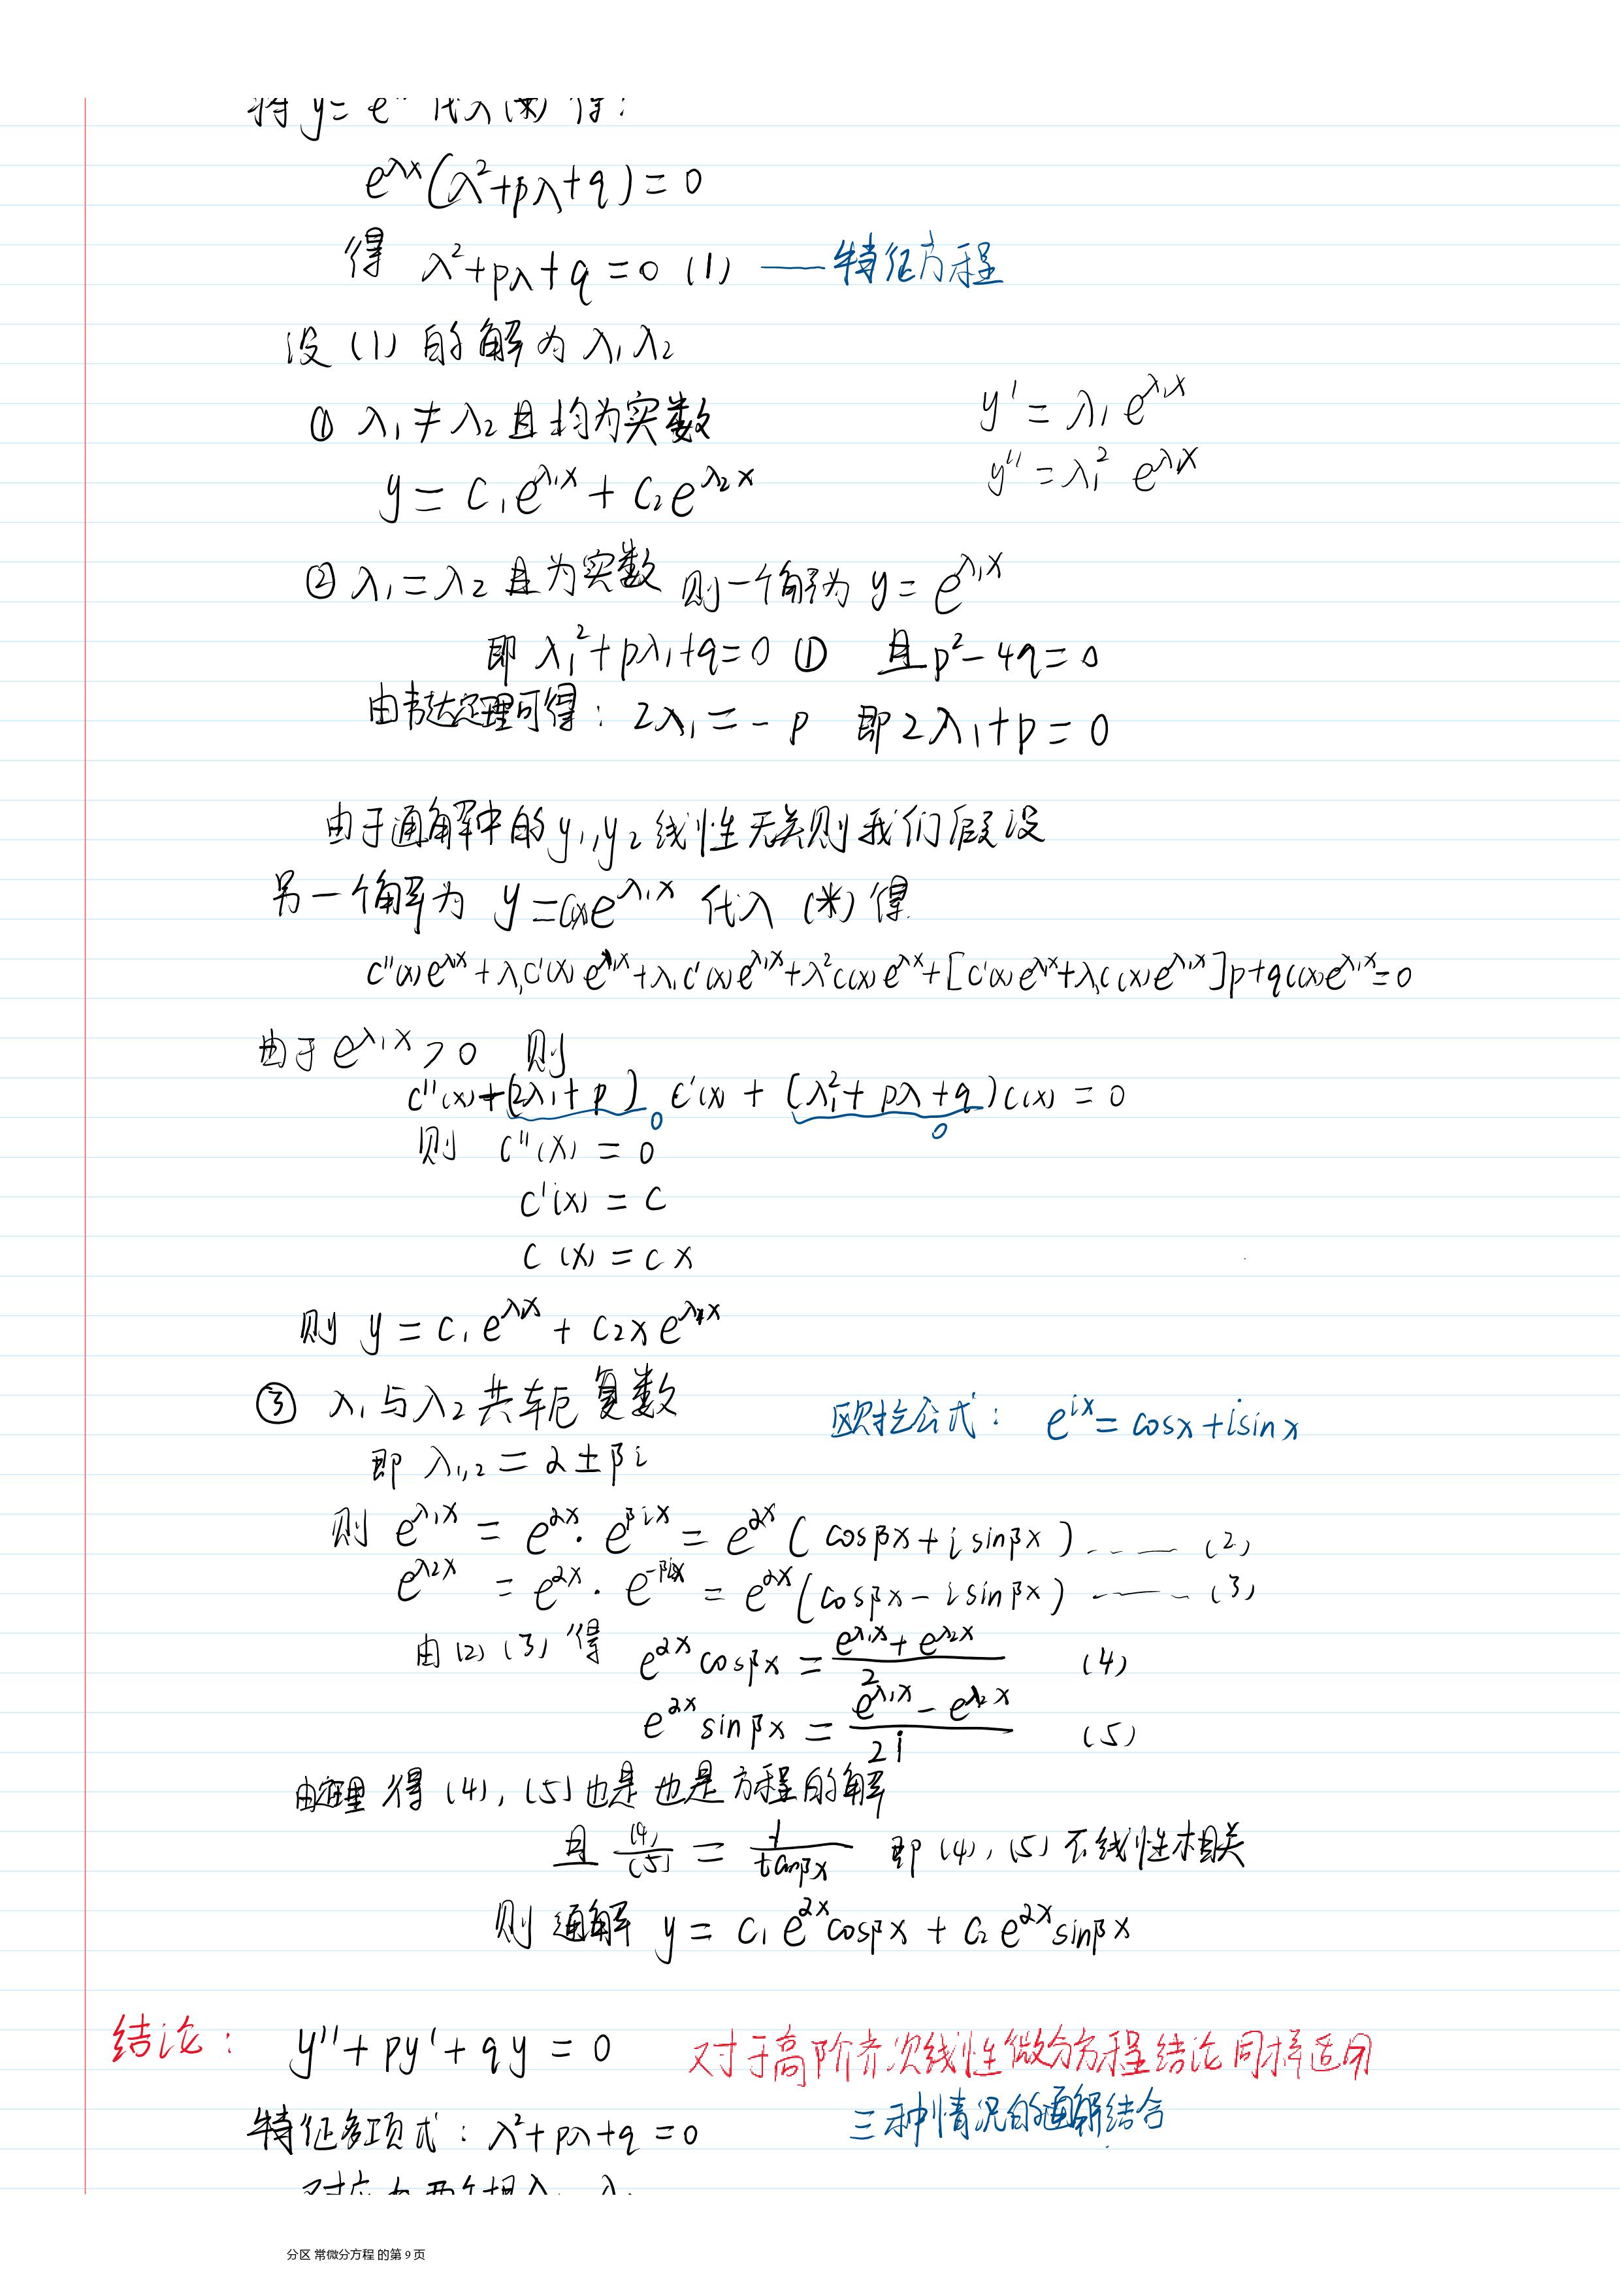 将 y= e 代入(*) 得:
e^{λx}(λ²+pλ+q)=0
得 λ²+pλ+q=0 (1) ——特征方程
设 (1) 的解为 λ₁ λ₂
① λ₁≠λ₂且均为实数
y' = λ₁e^{λ₁x}
y = C₁e^{λ₁x} + C₂e^{λ₂x}
y'' = λ₁² e^{λ₁x}
② λ₁=λ₂ 且为实数 则一个解为 y = e^{λ₁x}
即 λ₁²+pλ₁+q=0 ① 且p²-4q=0
由韦达定理可得: 2λ₁=-p 即2λ₁+p=0
由于通解中的y₁,y₂线性无关则我们假设
另一个解为 y=C(x)e^{λ₁x} 代入 (*) 得
C''(x)e^{λ₁x}+λ₁C'(x)e^{λ₁x}+λ₁C'(x)e^{λ₁x}+λ²C(x)e^{λ₁x}+[C'(x)e^{λ₁x}+λ₁C(x)e^{λ₁x}]p+qC(x)e^{λ₁x}=0
由于e^{λ₁x}>0 则
C''(x)+(2λ₁+p)C'(x)+(λ₁²+pλ+q)C(x)=0
0 0
则 C''(x)=0
C'(x)=C
C(x)=Cx
则 y=C₁e^{λ₁x}+C₂xe^{λ₁x}
③ λ₁与λ₂共轭复数
欧拉公式: e^{ix}=cosx+isinx
即 λ₁,₂=α±βi
则 e^{λ₁x}=e^{αx}·e^{βix}=e^{αx}(cosβx+isinβx)...... (2)
e^{λ₂x}=e^{αx}·e^{-βix}=e^{αx}(cosβx-isinβx)...... (3)
由(2)(3)得 e^{αx}cosβx=\frac{e^{λ₁x}+e^{λ₂x}}{2} (4)
e^{αx}sinβx=\frac{e^{λ₁x}-e^{λ₂x}}{2i} (5)
由定理 得(4),(5)也是也是方程的解
且 \frac{(4)}{(5)}=\frac{1}{tanβx} 即(4),(5)不线性相关
则通解 y=C₁e^{αx}cosβx+C₂e^{αx}sinβx
结论: y''+py'+qy=0 对于高阶齐次线性微分方程结论同样适用
三种情况的通解结合
特征多项式: λ²+pλ+q=0
对应有两个根λ₁ λ₂
分区 常微分方程 的第 9 页